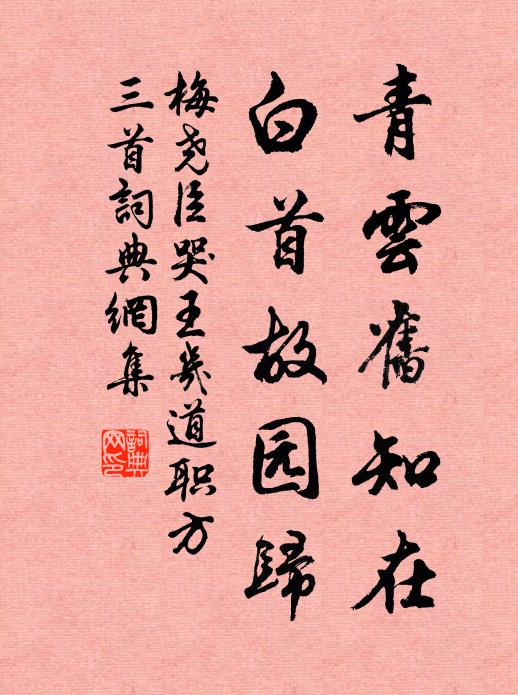 青雲舊知在
白首故园歸
梅尧臣哭王幾道职方
三首詞典網集
詞典网印